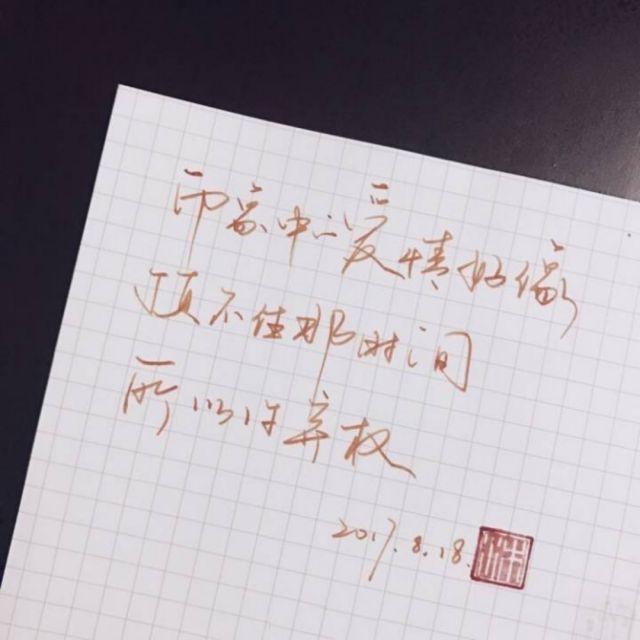 印象中的爱情好像
顶不住那时间
所以你弃权
2017.8.18.